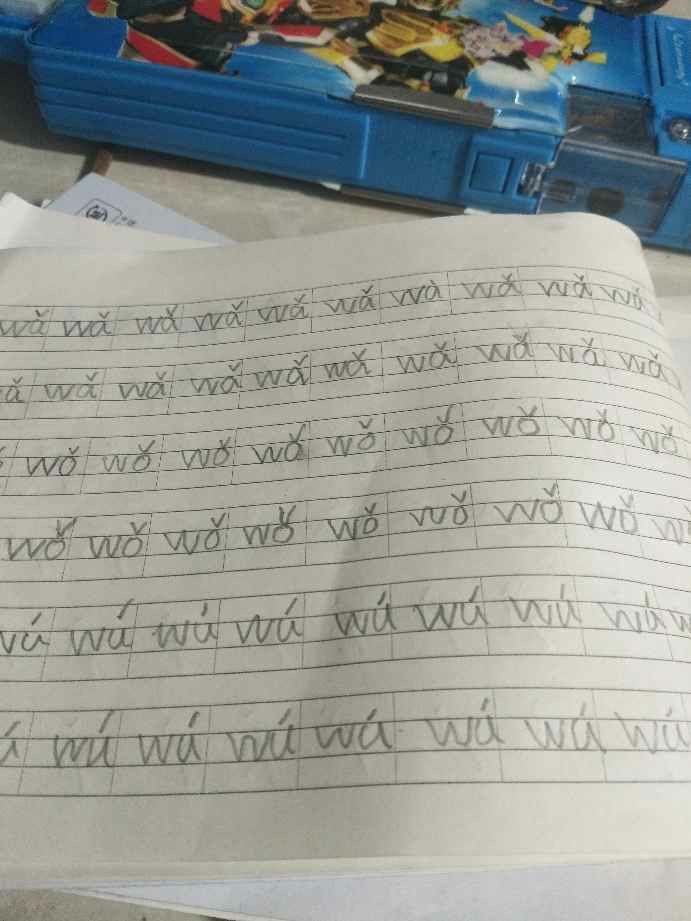 wǎ wǎ wǎ wǎ wǎ wǎ wà wǎ wǎ wá
ǎ wǎ wǎ wǎ wǎ wǎ wǎ wǎ wǎ wǎ
wǒ wǒ wǒ wǒ wǒ wǒ wǒ wǒ wǒ
wǒ wǒ wǒ wǒ wǒ wǒ wǒ wǒ w
wú wú wú wú wú wú wú wú w
wú wá wú wá wú wú wú